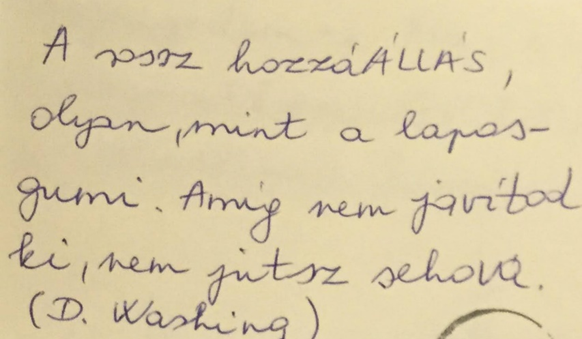 A rossz hozzáÁLLÁS,
olyan, mint a lapos-
gumi. Amíg nem javítod
ki, nem jutsz sehova.
(D. Washing)